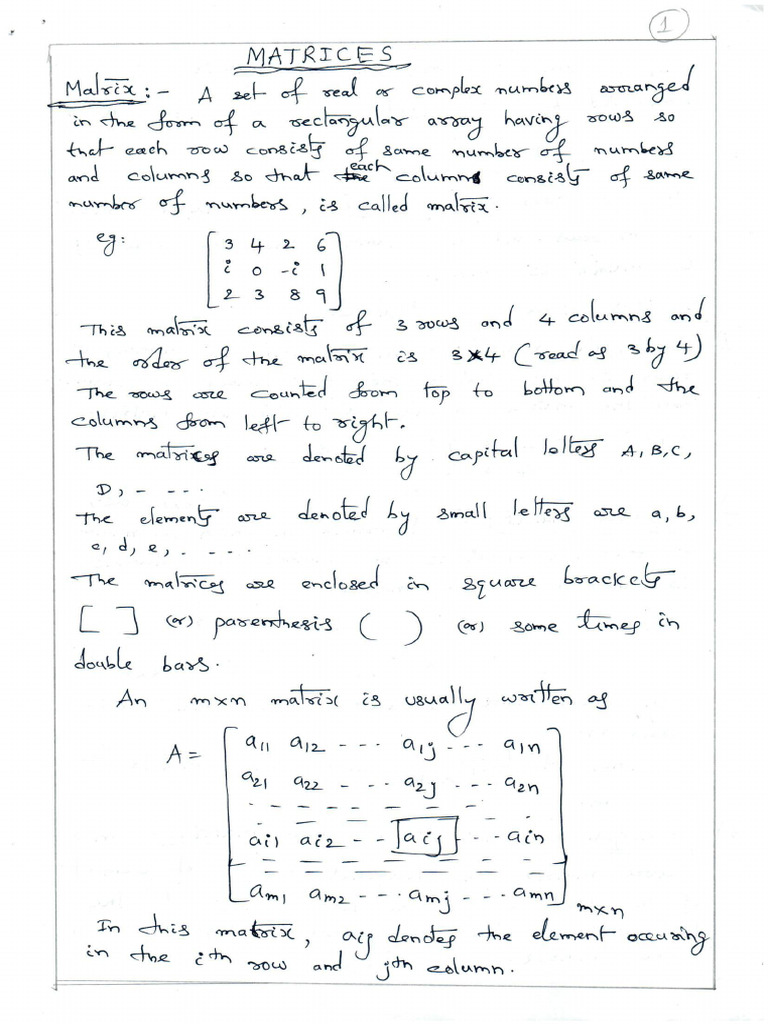 1
MATRICES
Matrix :- A set of real or complex numbers arranged
in the form of a rectangular array having rows so
that each row consists of same number of numbers
and columns so that each column consists of same
number of numbers, is called matrix.
eg: [ 3 4 2 6
i 0 -i 1
2 3 8 9 ]
This matrix consists of 3 rows and 4 columns and
the order of the matrix is 3×4 (read as 3 by 4)
The rows are counted from top to bottom and the
columns from left to right.
The matrices are denoted by capital letters A, B, C,
D, - ----.
The elements are denoted by small letters are a, b,
c, d, e, . ----
The matrices are enclosed in square brackets
[ ] (or) parenthesis ( ) (or) some times in
double bars.
An m×n matrix is usually written as
A = [ a11 a12 --- a1j --- a1n
a21 a22 --- a2j --- a2n
- - - - - - - -
ai1 ai2 -- aij -- ain
- - - - - - - -
am1 am2 --- amj --- amn ] m×n
In this matrix, aij denotes the element occuring
in the ith row and jth column.